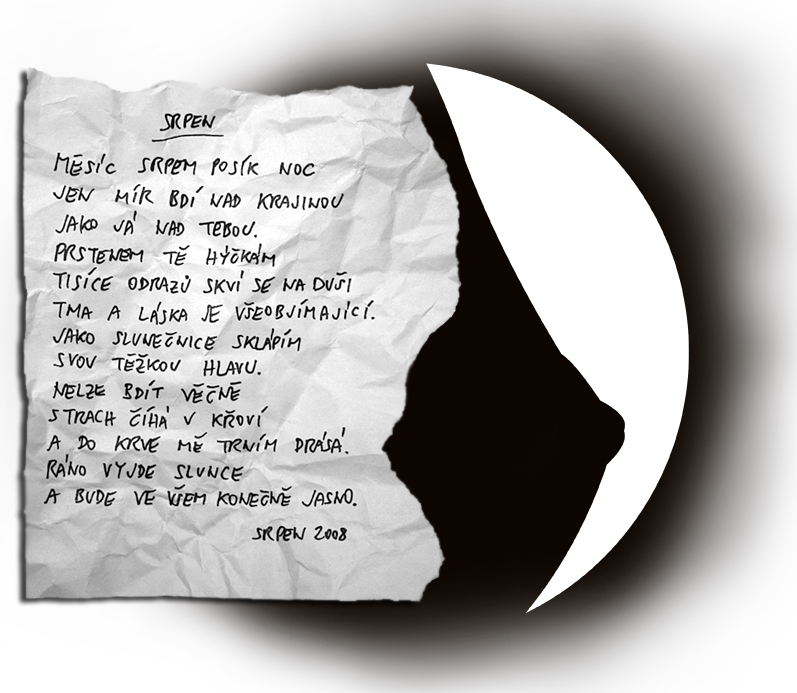 SRPEN
MĚSÍC SRPEM POSÍK NOC
JEN MÍR BDÍ NAD KRAJINOU
JAKO JÁ NAD TEBOU.
PRSTENEM TĚ HÝČKÁM
TISÍCE ODRAZŮ SKVÍ SE NA DUŠI
TMA A LÁSKA JE VŠEOBJÍMAJÍCÍ.
JAKO SLUNEČNICE SKLÁPÍM
SVOU TĚŽKOU HLAVU.
NELZE BDÍT VĚČNĚ
STRACH ČÍHÁ V KŘOVÍ
A DO KRVE MĚ TRNÍM DRÁSÁ.
RÁNO VYJDE SLUNCE
A BUDE VE VŠEM KONEČNĚ JASNO.
SRPEN 2008